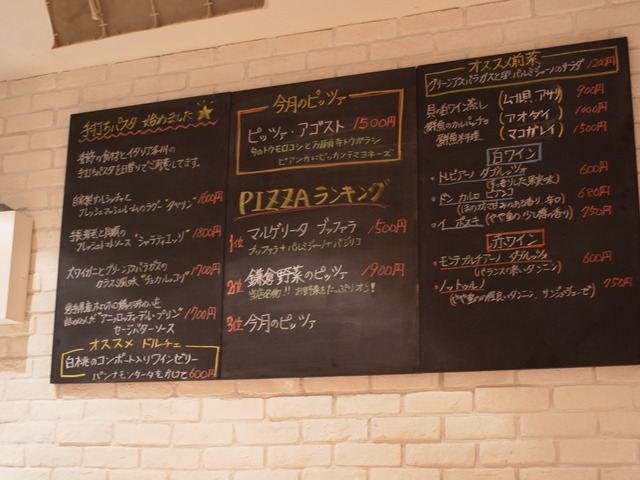 手打ちパスタ 始めました
季節の食材とイタリア各州の
手打ちパスタを日替りでご用意してます。
自家製サルシッチャと
フレッシュマッシュルームのラグー "タヤリン" 1600円
フレッシュトマトソース "シャラティエッリ" 1800円
ズワイガニとグリーンアスパラガスの
カラスミ風味 1700円
"アニョロッティ・デル・プリン" 1700円
セージバターソース
オススメ ドルチェ
白桃のコンポート入りワインゼリー
パンナモンタータをかけて 600円
今月のピッツァ
ピッツァ・アゴスト 1500円
旬のトウモロコシと万願寺トウガラシ
ビアンカにピッカンテマヨネーズ
PIZZAランキング
1位 マルゲリータ ブッファラ 1500円
ブッファラ+パルミジャーノ+バジリコ
2位 鎌倉野菜のピッツァ 1900円
当店名物!! お野菜たっぷりオン!
3位 今月のピッツァ
オススメ前菜
グリーンアスパラガスと卵 パルミジャーノのサラダ 1200円
貝の白ワイン蒸し (ムール貝、アサリ) 900円
鮮魚のカルパッチョ (アオダイ) 1000円
鮮魚料理 (マコガレイ) 1500円
白ワイン
・トレビアーノ ダブルッツォ 600円
(すっきりした果実味)
・ドン カルロ ビアンコ 650円
(ほのかな甘みのある香り、辛口)
・イ ポエキ (やや重め 少し樽の香り) 750円
赤ワイン
・モンテプルチアーノ ダブルッツォ 600円
(バランス良いタンニン)
・ノットゥルノ 750円
(やや重めの程良いタンニン、サンジョヴェーゼ)